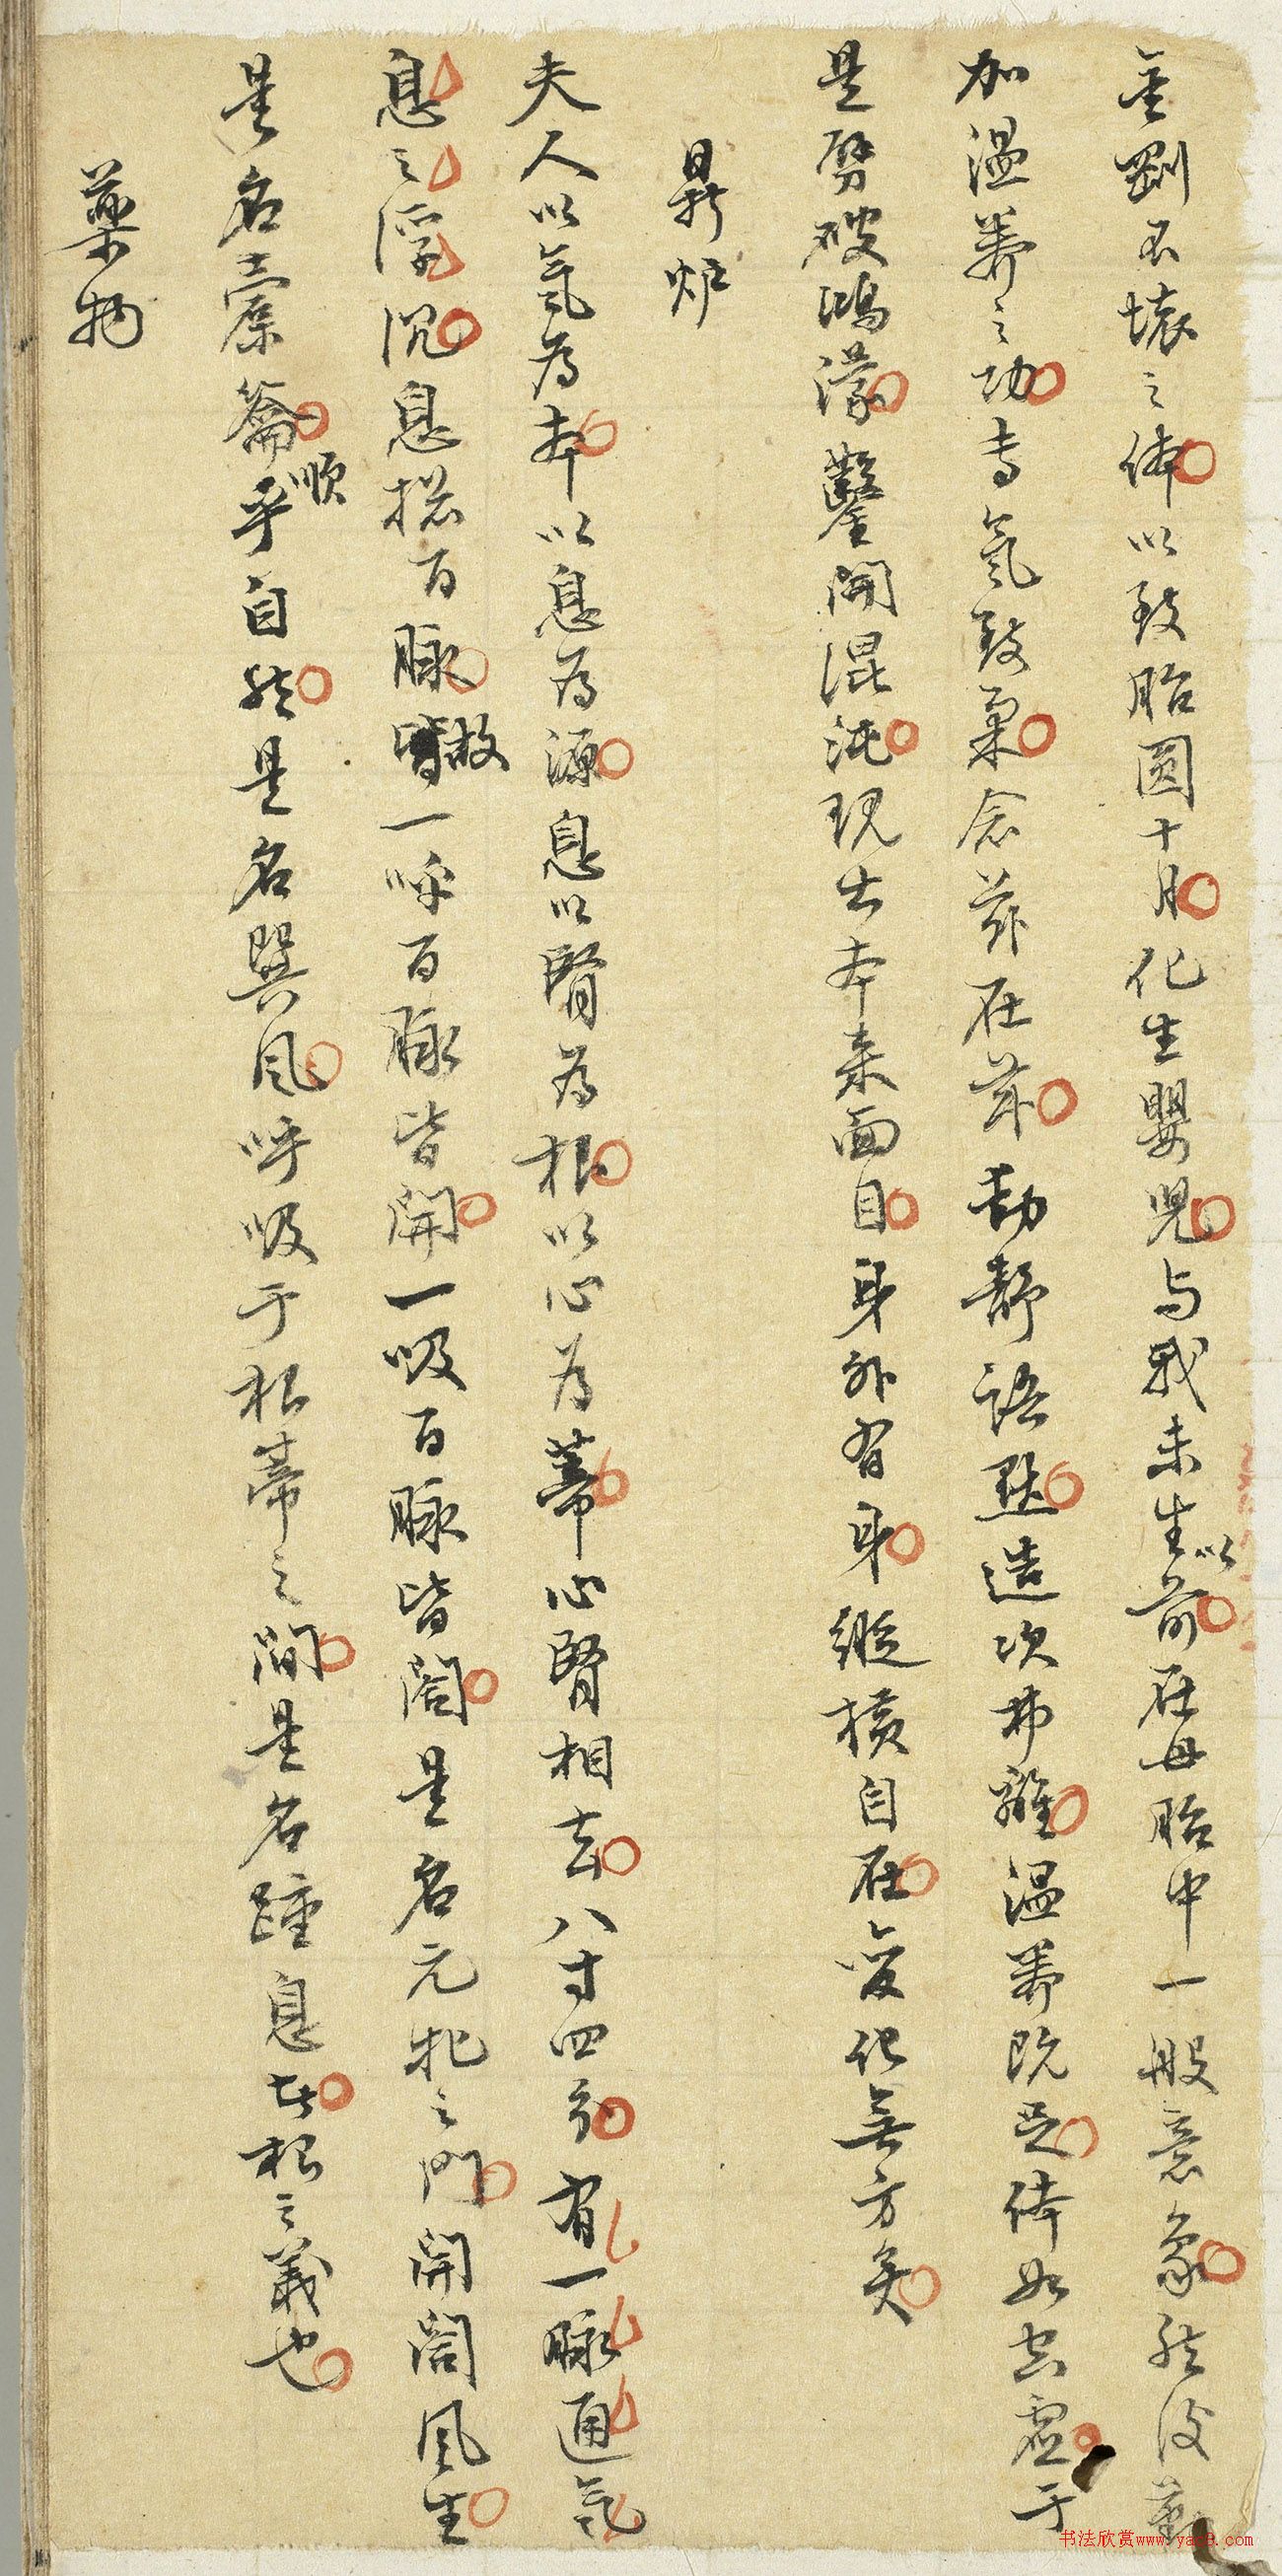 金剛不壞之体以致胎圓十月化生嬰兒与我未生以前在母胎中一般意象然後
加溫养之功专氣致柔念茲在茲動静語默造次弗離溫养既足体如太虛于
是劈破鴻濛鑿開混沌現出本来面目身外有身縱横自在变化無方矣
鼎炉
夫人以氣為本以息為源息以腎為根以心為蒂心腎相去八寸四分有一脉通氣
息之浮沉息摠百脉故一呼百脉皆開一吸百脉皆闔是名元牝之門開闔風生
是名橐籥順乎自然是名巽風呼吸于根蒂之間是名踵息歸根之義也
藥物
书法欣赏www.yac8.com